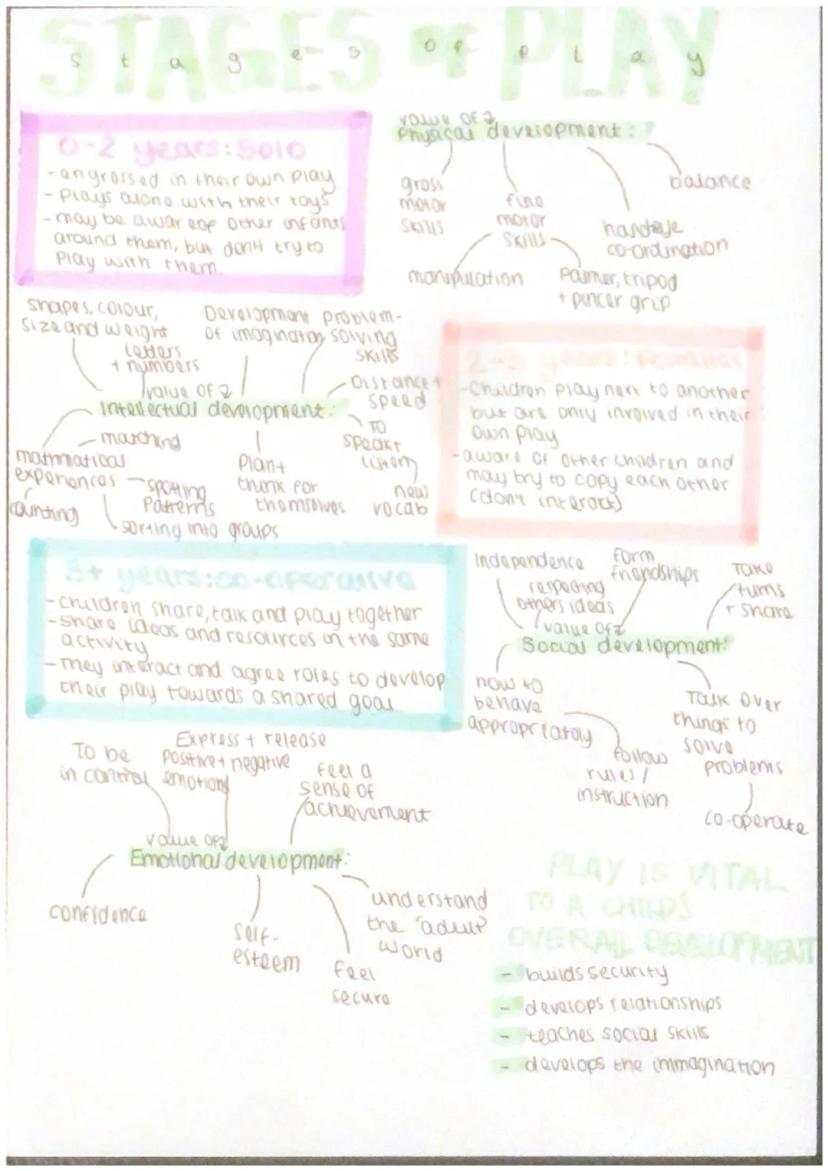 STAGES OF PLAY
stages of play
0-2 years: solo
- engrossed in their own play
- plays alone with their toys
- may be aware of other infants
around them, but don't try to
play with them.
value of?
Physical development:
gross
motor
skills
fine
motor
skills
manipulation
Palmer, tripod
+ pincer grip
handeye
co-ordination
balance
shapes, colour,
size and weight
letters
+ numbers
Development
of imagination
problem-
solving
skills
Distance +
speed
value of?
Intellectual development:
TO
speak +
listen
new
vocab
matching
mathmatical
experiences
counting
spotting
patterns
sorting into groups
Plan +
think for
themselves
2-3 years: Parallel
- Children play next to another
but are only involved in their
own play
- aware of other children and
may try to copy each other
(dont interact)
3+ years: co-operative
- children share, talk and play together
- share ideas and resources on the same
activity
- They interact and agree roles to develop
their play towards a shared goal
Independence
respecting
others ideas
form
friendships
Take
turns
+ share
value of?
Social development:
how to
behave
appropriately
follow
rules /
instruction
Talk over
things to
solve
problems
co-operate
To be
in control
Express + release
positive + negative
emotions
feel a
sense of
achievement
value of?
Emotional development:
confidence
self-
esteem
feel
secure
understand
the 'adult'
world
PLAY IS VITAL
TO A CHILDS
OVERALL DEVELOPMENT
- builds security
- develops relationships
- teaches social skills
- develops the immagination